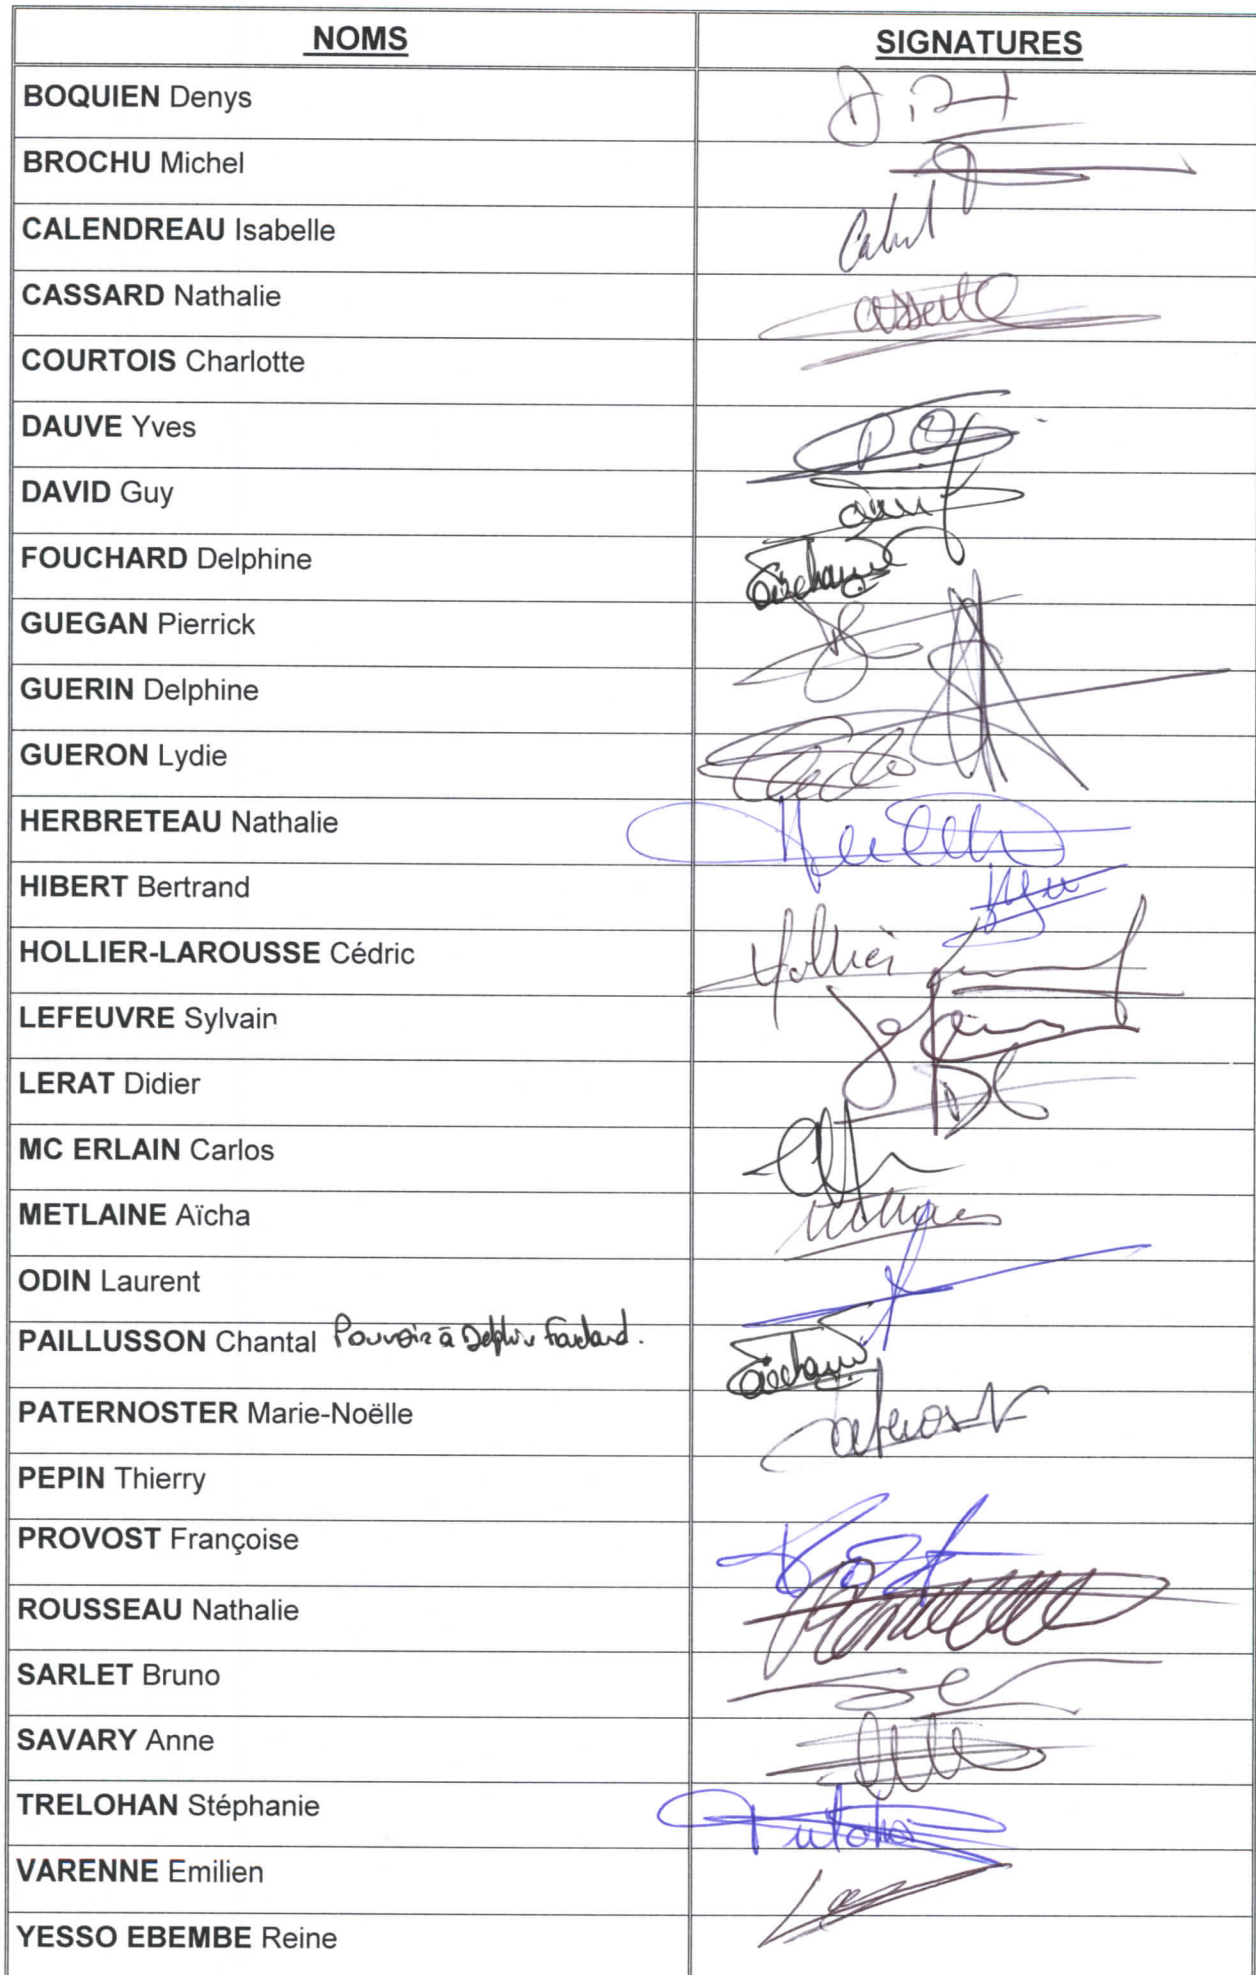 NOMS SIGNATURES
BOQUIEN Denys
BROCHU Michel
CALENDREAU Isabelle
CASSARD Nathalie
COURTOIS Charlotte
DAUVE Yves
DAVID Guy
FOUCHARD Delphine
GUEGAN Pierrick
GUERIN Delphine
GUERON Lydie
HERBRETEAU Nathalie
HIBERT Bertrand
HOLLIER-LAROUSSE Cédric Hollier
LEFEUVRE Sylvain
LERAT Didier
MC ERLAIN Carlos
METLAINE Aïcha
ODIN Laurent
PAILLUSSON Chantal Pouvoir à Delphine Fouchard.
PATERNOSTER Marie-Noëlle
PEPIN Thierry
PROVOST Françoise
ROUSSEAU Nathalie
SARLET Bruno
SAVARY Anne
TRELOHAN Stéphanie
VARENNE Emilien
YESSO EBEMBE Reine